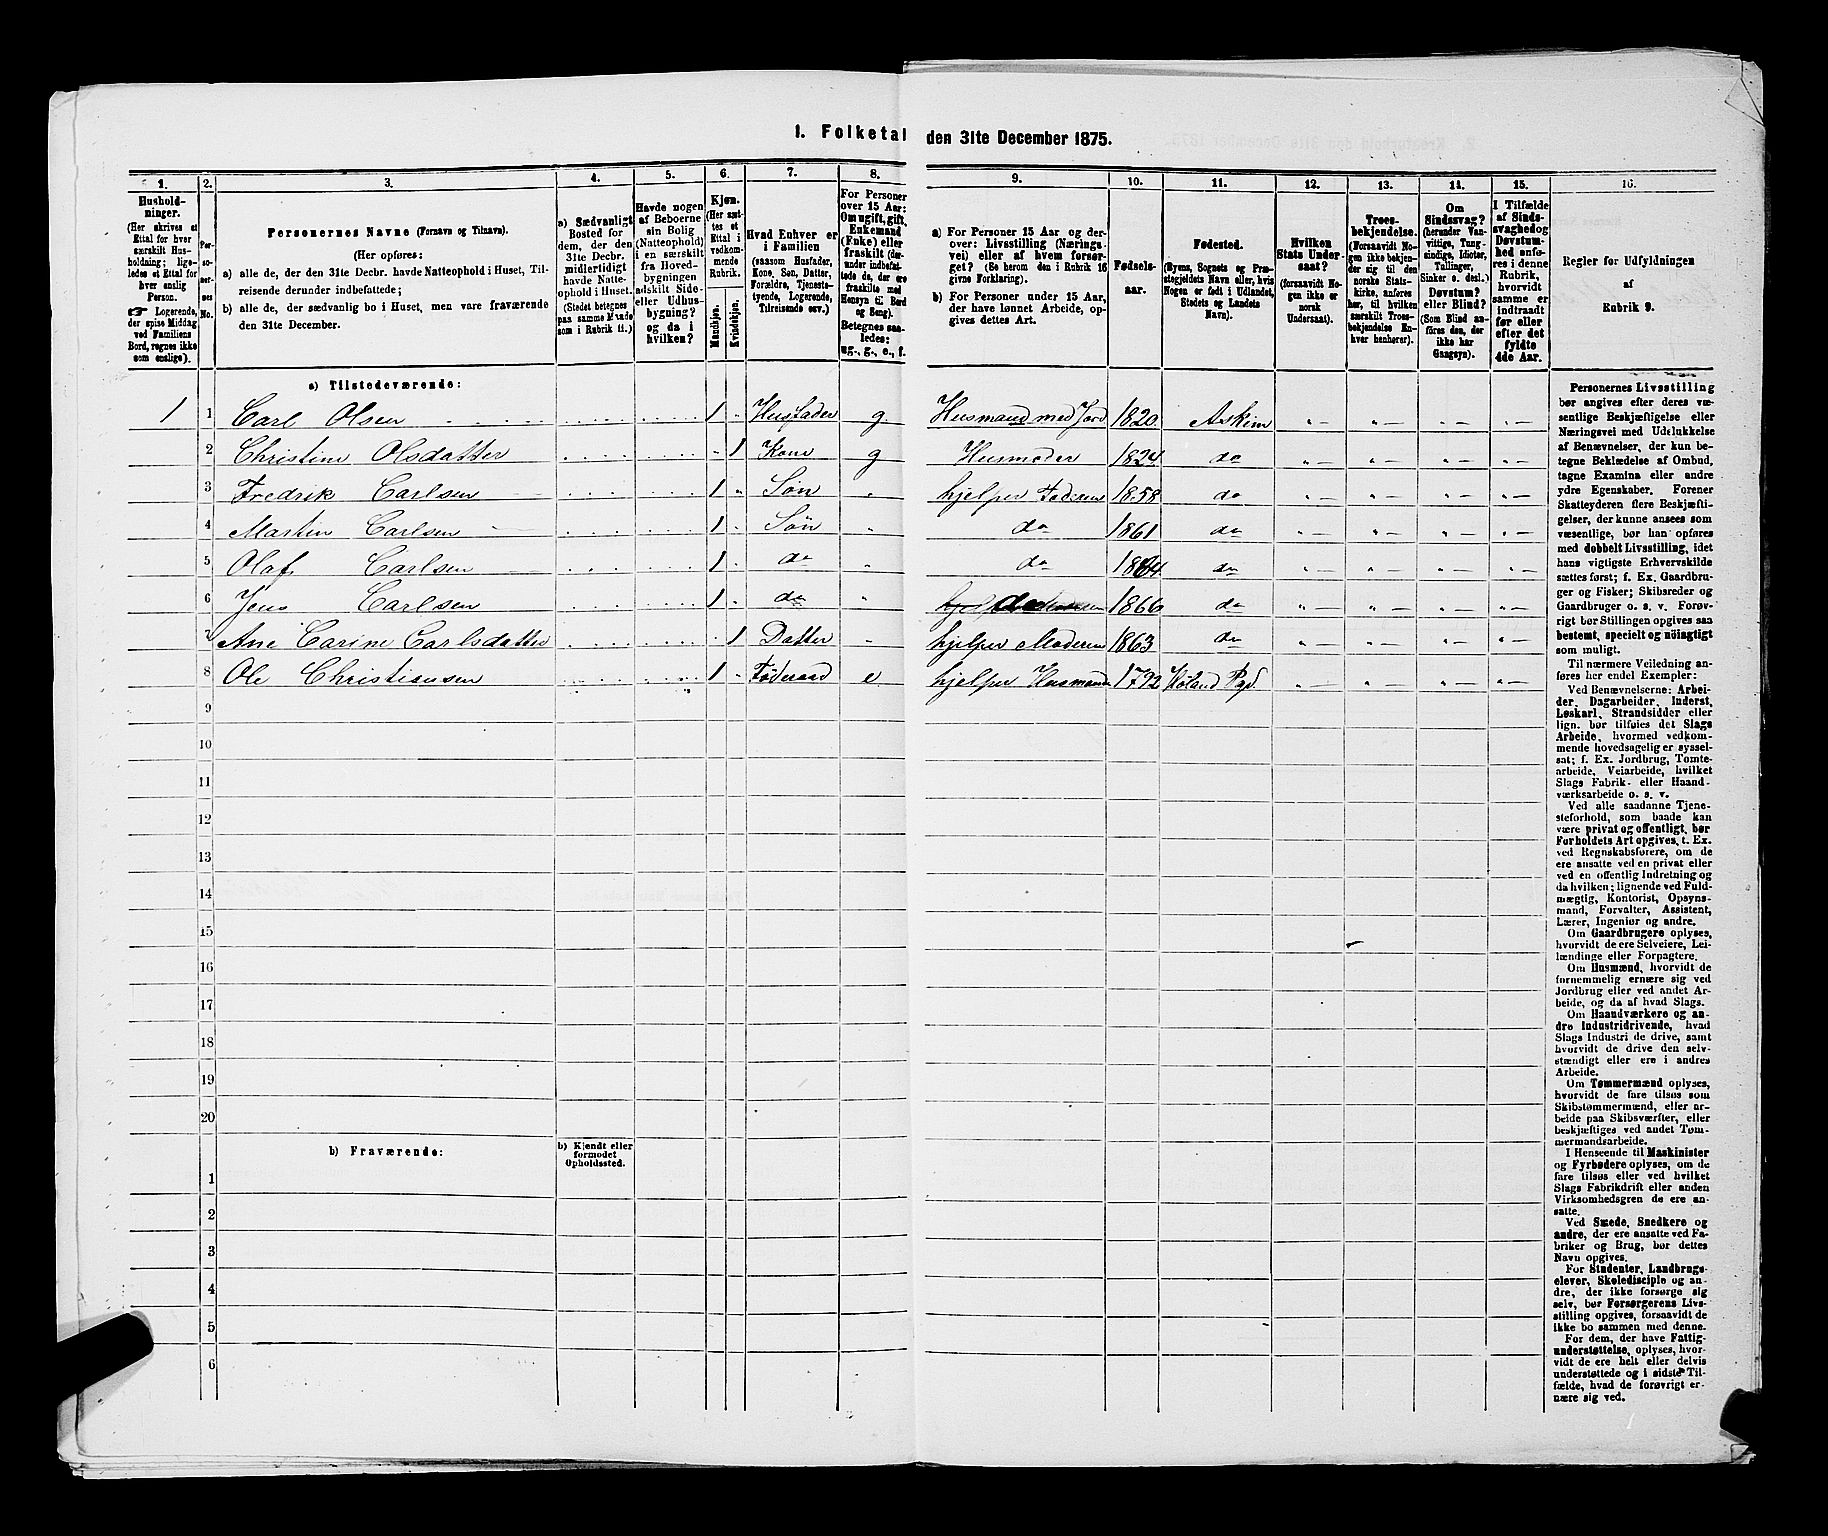 1. Folketal den 31te December 1875.
1. 2. 3. 4. 5. 6. 7. 8. 9. 10. 11. 12. 13. 14. 15. 16.
Hushold-
ninger.
(Her skrives et
Ettal for hver
særskilt Hus-
holdning; lige-
ledes et Ettal for
hver enslig
Person.
☞ Logerende,
der spise Middag
ved Familiens
Bord, regnes ikke
som enslige).
Per-
so-
ner-
nes
No.
Personernes Navne (Fornavn og Tilnavn).
(Her opføres:
a) alle de, der den 31te Decbr. havde Natteophold i Huset, Til-
reisende derunder indbefattede;
b) alle de, der sædvanlig bo i Huset, men vare fraværende
den 31te December.
a) Sædvanligt
Bosted for
dem, der den
31te Decbr.
midlertidigt
havde Natte-
ophold i Huset.
(Stedet betegnes
paa samme Maade
som i Rubrik 11.)
Havde nogen
af Beboerne
sin Bolig
(Natteophold)
i en særskilt
fra Hoved-
bygningen
adskilt Side-
eller Udhus-
bygning?
og da i
hvilken?
Kjøn.
(Her sæt-
tes et
Ettal i
vedkom-
mende
Rubrik.
Mandkjøn.
Kvindekjøn.
Hvad Enhver er
i Familien
(saasom Husfader,
Kone, Søn, Datter,
Forældre, Tjeneste-
tyende, Logerende,
Tilreisende osv.)
For Personer
over 15 Aar:
Om ugift, gift,
Enkemand
(Enke) eller
fraskilt (der-
under indbefat-
tede de, der ere
fraskilte med
Hensyn til Bord
og Seng).
Betegnes saa-
ledes:
ug., g., e., f.
a) For Personer 15 Aar og der-
over: Livsstilling (Nærings-
vei) eller af hvem forsør-
get? (Se herom den i Rubrik 16
givne Forklaring).
b) For Personer under 15 Aar,
der have lønnet Arbeide, op-
gives dettes Art.
Fødsels-
aar.
Fødested.
(Byens, Sognets og Præ-
stegjeldets Navn eller, hvis
Nogen er født i Udlandet,
Stedets og Landets
Navn).
Hvilken
Stats Under-
saat?
(forsaavidt No-
gen ikke er
norsk
Undersaat).
Troes-
bekjendelse.
(Forsaavidt No-
gen ikke bekjen-
der sig til den
norske Stats-
kirke, anføres
her, til hvilken
særskilt Troes-
bekjendelse En-
hver henhører).
Om
Sindssvag?
(herunder Van-
vittige, Tung-
sindige, Idioter,
Tullinger,
Sinker o. desl.)
Døvstum?
eller Blind?
(Som Blind an-
føres den, der
ikke har
Gangsyn).
I Tilfælde
af Sinds-
svaghed og
Døvstum-
hed anfø-
res i denne
Rubrik,
hvorvidt
samme er
indtraadt
før eller
efter det
fyldte
4de Aar.
Regler for Udfyldningen
af
Rubrik 9.
a) Tilstedeværende:
1 1 Carl Olsen 1 " Husfader g Husmand med Jord 1820 Askim "— "— "— "—
2 Christine Olsdatter " 1 Kone g Husmoder 1824 do "— "— "— "—
3 Fredrik Carlsen 1 " Søn " hjelper Faderen 1858 do "— "— "— "—
4 Martin Carlsen 1 " Søn " do 1861 do "— "— "— "—
5 Olaf Carlsen 1 " do " do 1864 do "— "— "— "—
6 Jens Carlsen 1 " do " do 1866 do "— "— "— "—
7 Ane Carine Carlsdatter 1 Datter " hjelper Moderen 1863 do "— "— "— "—
8 Ole Christiansen 1 " Føderaad e hjelper Husmanden 1792 Høland Pgd. "— " "— "—
9
10
11
12
13
14
15
16
17
18
19
20
b) Fraværende:
b) Kjendt eller
formodet
Opholdssted.
1
2
3
4
5
6
Personernes Livsstilling
bør angives efter deres væ-
sentlige Beskjæftigelse eller
Næringsvei med Udelukkelse
af Benævnelser, der kun be-
tegne Beklædelse af Ombud,
tagne Examina eller andre
ydre Egenskaber. Forener
Skatteyderen flere Beskjæfti-
gelser, der kunne ansees som
væsentlige, bør han opføres
med dobbelt Livsstilling, idet
hans vigtigste Erhvervskilde
sættes først; f. Ex. Gaardbru-
ger og Fisker; Skibsreder og
Gaardbruger o. s. v. Forøv-
rigt bør Stillingen opgives saa
bestemt, specielt og nøiagtigt
som muligt.
Til nærmere Veiledning an-
føres her endel Exempler:
Ved Benævnelserne: Arbei-
der, Dagarbeider, Inderst,
Løskarl, Strandsidder eller
lign. bør tilføies det Slags
Arbeide, hvormed vedkom-
mende hovedsagelig er syssel-
sat; f. Ex. Jordbrug, Tomte-
arbeide, Veiarbeide, hvilket
Slags Fabrik- eller Haand-
værksarbeide o. s. v.
Ved alle saadanne Tjene-
steforhold, som baade kan
være privat og offentligt, bør
Forholdets Art opgives, t. Ex.
ved Regnskabsførere, om de
ere ansatte ved en privat eller
ved en offentlig Indretning og
da hvilken; lignende ved Fuld-
mægtig, Kontorist, Opsyns-
mand, Forvalter, Assistent,
Lærer, Ingeniør og andre.
Om Gaardbrugere oplyses,
hvorvidt de ere Selveiere, Lei-
lændinge eller Forpagtere.
Om Husmænd, hvorvidt de
fornemmelig ernære sig ved
Jordbrug eller ved andet Ar-
beide, og da af hvad Slags.
Om Haandværkere og an-
dre Industridrivende, hvad
Slags Industri de drive, samt
hvorvidt de drive den selv-
stændigt eller ere i andres
Arbeide.
Om Tømmermænd oplyses,
hvorvidt de fare tilsøs som
Skibstømmermænd, eller ar-
beide paa Skibsværfter, eller
beskjæftiges ved andet Tøm-
mermandsarbeide.
I Henseende til Maskinister
og Fyrbødere oplyses, om de
fare tilsøs eller ved hvilket
Slags Fabrikdrift eller anden
Virksomhedsgren de ere an-
satte.
Ved Smede, Snedkere og
andre, der ere ansatte ved Fa-
briker og Brug, bør dettes
Navn opgives.
For Studenter, Landbrugs-
elever, Skoledisciple og an-
dre, der ikke forsørge sig
selv, bør Forsørgerens Livs-
stilling opgives, forsaavidt de
ikke bo sammen med denne.
For dem, der have Fattig-
understøttelse, oplyses, hvor-
vidt de ere helt eller delvis
understøttede og i sidste Til-
fælde, hvad de forøvrigt er-
nære sig ved.